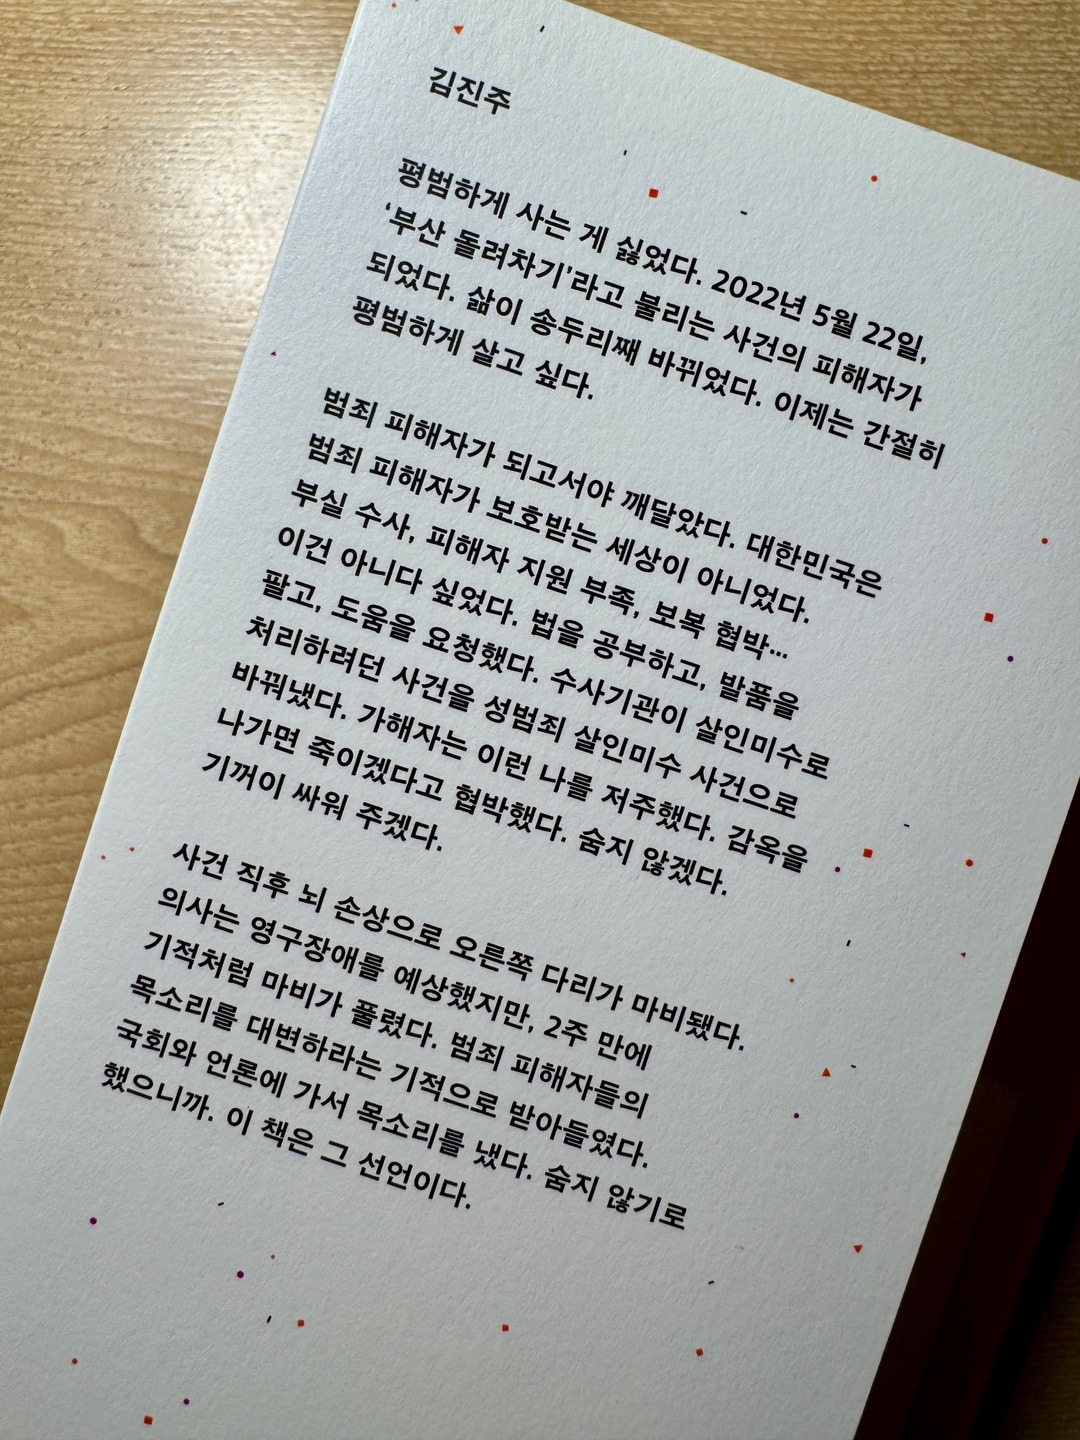 김진주
평범하게 사는 게 싫었다. 2022년 5월 22일,
‘부산 돌려차기’라고 불리는 사건의 피해자가
되었다. 삶이 송두리째 바뀌었다. 이제는 간절히
평범하게 살고 싶다.
범죄 피해자가 되고서야 깨달았다. 대한민국은
범죄 피해자가 보호받는 세상이 아니었다.
부실 수사, 피해자 지원 부족, 보복 협박…
이건 아니다 싶었다. 법을 공부하고, 발품을
팔고, 도움을 요청했다. 수사기관이 살인미수로
처리하려던 사건을 성범죄 살인미수 사건으로
바꿔냈다. 가해자는 이런 나를 저주했다. 감옥을
나가면 죽이겠다고 협박했다. 숨지 않겠다.
기꺼이 싸워 주겠다.
사건 직후 뇌 손상으로 오른쪽 다리가 마비됐다.
의사는 영구장애를 예상했지만, 2주 만에
기적처럼 마비가 풀렸다. 범죄 피해자들의
목소리를 대변하라는 기적으로 받아들였다.
국회와 언론에 가서 목소리를 냈다. 숨지 않기로
했으니까. 이 책은 그 선언이다.